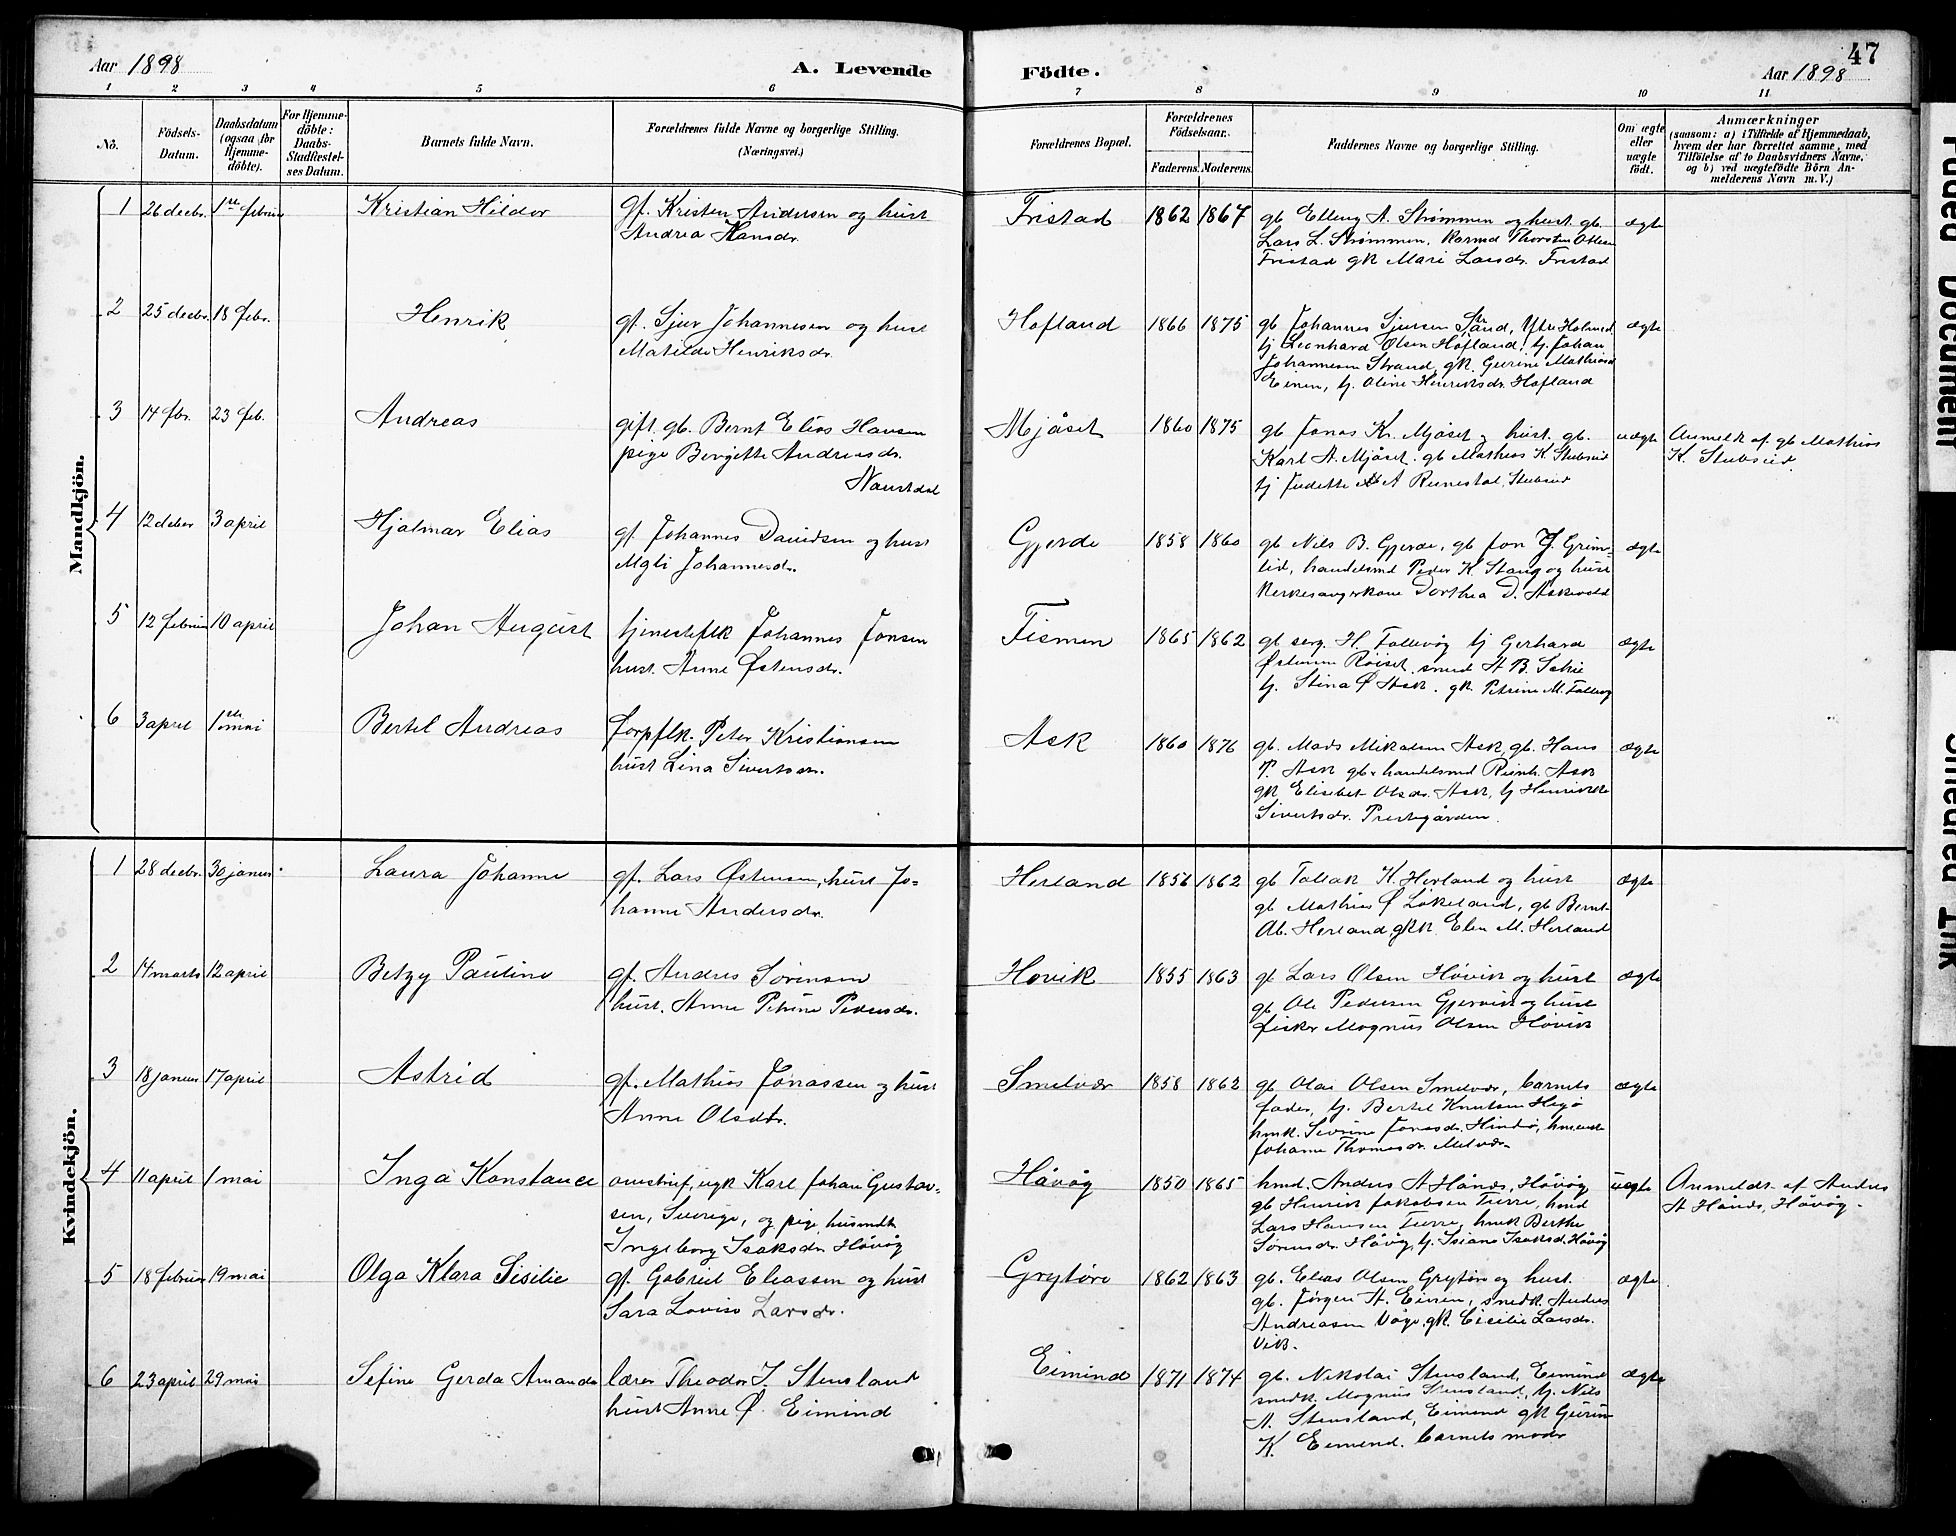 47
Aar 1898
A. Levende Födte.
Aar 1898
1 2 3 4 5 6 7 8 9 10 11
No.
Födsels-Datum.
Daabsdatum (ogsaa for Hjemme-döbte).
For Hjemme-döbte: Daabs-Stadfæstel-ses Datum.
Barnets fulde Navn.
Forældrenes fulde Navne og borgerlige Stilling.
(Næringsvei.)
Forældrenes Bopæl.
Forældrenes Födselsaar.
Faderens. Moderens.
Faddernes Navne og borgerlige Stilling.
Om ægte eller uægte födt.
Anmærkninger
(saasom: a) i Tilfælde af Hjemmedaab, hvem der har forrettet samme, med Tilföielse af to Daabsvidners Navne, og b) ved uægtefödte Börn Anmelderens Navn m.V.)
Mandkjön.
1 26 decbr. 1ste februar Kristian Hildor gf. Kristen Andersen og hust
Andrea Hansdr.
Fristad 1862 1867 gb Elling A. Strømmen og hust. gb.
Lars L. Strømmen, Thorsten Olsen
Fristad gk Mari Larsdr. Fristad
ægte
2 25 decbr. 18 febr. Henrik gf. Sjur Johannesen og hust
Matilde Henriksdr.
Hofland 1866 1875 gb Johannes Sjursen Strand, Ytre Holmed
tj Leonhard Olsen Hofland, tj. Johan
Johannesen Strand, gk. Gurine Mathiasd
Einen, tj. Oline Henriksdr. Hofland
ægte
3 14 fbr. 23 feb. Andreas gift gb. Bernt Elias Hansen
pige Bergitte Andreasdr.
Naustdal
Mjåset 1860 1875 gb Jonas K. Mjåset og hust. gb.
Karl A. Mjåset. gb Mathias K. Stubseid
tj Judette A Runestal, Stubseid
uægte Anmeldt af gb Mathias
K. Stubseid.
4 12 decbr 3 april Hjalmar Elias gf. Johannes Davidsen og hust
Magli Johannesd.
Gjerde 1858 1860 gb Nils B. Gjerde, gb Jon J. Grim-
lid, handelsmd Peder K. Stang og hust
Kirkesangerkone Dorthea D. Askevold
ægte
5 12 februar 10 april Johan August tjenestefk Johannes Jonsen
hust. Anne Østensdr.
Tismen 1865 1862 gb serg. H. Tollevåg tj Gerhard
Østensen Røiset, smed A B. Selie
tj. Stina Ø Ask. gk. Petrine M. Tollevåg
ægte
6 3 april 1ste mai Bertel Andreas forpflk. Peter Kristiansen
hust Lina Sivertsdr.
Ask 1860 1876 gb. Mads Mikalsen Ask, gb. Hans
P. Ask gb. handelsmd Reinh. Ask
gk Elisabet Olsdr. Ask, tj Henrikke
Sivertsdr. Prestegården.
ægte
Kvindekjön.
1 28 decbr. 30 januar Laura Johanne gf. Lars Østensen, hust Jo-
hanne Andersdr.
Herland 1856 1862 gb Tollak K. Herland og hust
gb Mathias Ø Løkeland, gb Bernt
Ab. Herland, gkk Elen M. Herland
ægte
2 14 marts 12 april Betzy Pauline gf. Andres Sørensen
hust. Anne Petrine Pedersdr.
Hovik 1855 1863 gb Lars Olsen Høvik og hust
gb Ole Pedersen Gjervik og hust
fisker Magnus Olsen Høvik
ægte
3 18 januar 17 april Astrid gf. Mathias Jonassen og hust
Anne Olsdtr.
Smelvær 1858 1862 gb Olai Olsen Smelvær, barnets
fader, tj. Bertel Knutsen Hegø
hmk. Severine Jonasdr. Hindø,
Johanne Thomasdr. Melvær.
ægte
4 11 april 1 mai Inga Konstance omstreif. ugk Karl Johan Gustav-
sen, Sverige, og pige, husmdt
Ingeborg Isaksdr. Håvåg
Håvåg 1850 1865 hmd. Anders A Hånds, Håvåg
gb Henrik Jakobsen Tvirre, hmd
Lars Hansen Tvirre, hmk Berthe
Sørensdr. Håvåg, tj. Isiane Isaksd. Håvåg
uægte Anmeldt af Andres
A Hånds, Håvåg.
5 18 februar 19 mai Olga Klara Sisilie gf. Gabriel Eliassen og hust
Sara Lovise Larsdr.
Grytøre 1862 1863 gb. Elias Olsen Grytøre og hust.
gb. Jørgen A. Einen, snedk. Anders
Andreasen Våge, gk. Cicilie Larsdr.
Vik.
ægte
6 23 april 29 mai Sefine Gerda Amanda lærer Theodor J. Stensland
hust Anne Ø. Eimind
Eimind 1871 1874 gb. Nikolai Stensland, Eimind
snedk Magnus Stensland, tj. Nils
A. Stensland, Eimind gk Gurine
K. Eimind. barnets moder
ægte
Faded Document
Smeared Ink